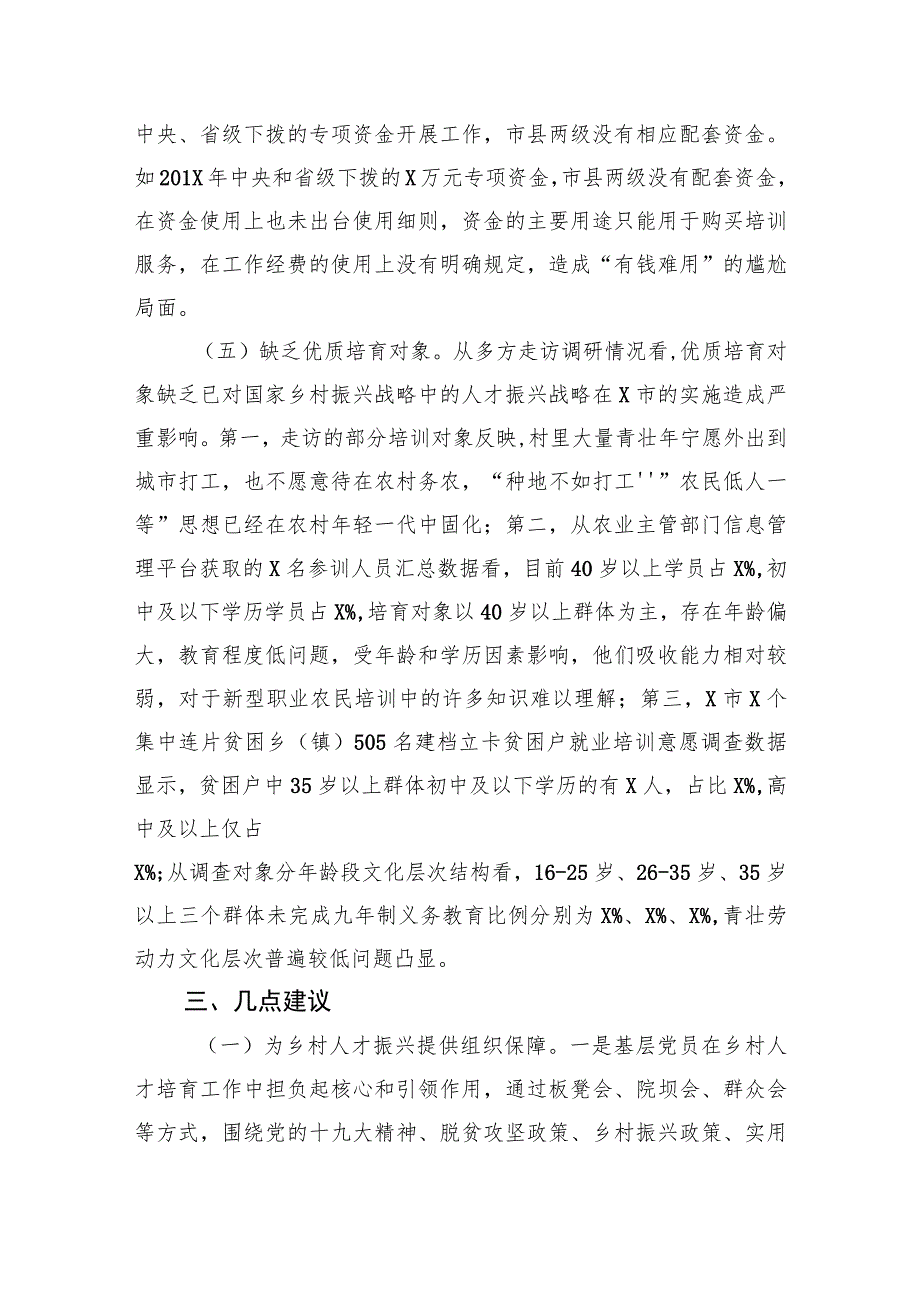 中央、省级下拨的专项资金开展工作，市县两级没有相应配套资金。
如201X年中央和省级下拨的X万元专项资金,市县两级没有配套资金，
在资金使用上也未出台使用细则，资金的主要用途只能用于购买培训
服务，在工作经费的使用上没有明确规定，造成“有钱难用”的尴尬
局面。
（五）缺乏优质培育对象。从多方走访调研情况看,优质培育对
象缺乏已对国家乡村振兴战略中的人才振兴战略在X市的实施造成严
重影响。第一，走访的部分培训对象反映,村里大量青壮年宁愿外出到
城市打工，也不愿意待在农村务农，“种地不如打工''”农民低人一
等”思想已经在农村年轻一代中固化；第二，从农业主管部门信息管
理平台获取的X名参训人员汇总数据看，目前40岁以上学员占X%,初
中及以下学历学员占X%,培育对象以40岁以上群体为主，存在年龄偏
大，教育程度低问题，受年龄和学历因素影响，他们吸收能力相对较
弱，对于新型职业农民培训中的许多知识难以理解；第三，X市X个
集中连片贫困乡（镇）505名建档立卡贫困户就业培训意愿调查数据
显示，贫困户中35岁以上群体初中及以下学历的有X人，占比X%,高
中及以上仅占
X%;从调查对象分年龄段文化层次结构看，16-25岁、26-35岁、35岁
以上三个群体未完成九年制义务教育比例分别为X%、X%、X%,青壮劳
动力文化层次普遍较低问题凸显。
三、几点建议
（一）为乡村人才振兴提供组织保障。一是基层党员在乡村人
才培育工作中担负起核心和引领作用，通过板凳会、院坝会、群众会
等方式，围绕党的十九大精神、脱贫攻坚政策、乡村振兴政策、实用